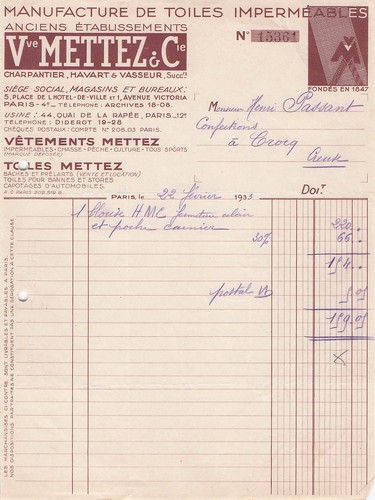 MANUFACTURE DE TOILES IMPERMÉABLES
ANCIENS ÉTABLISSEMENTS
Vve METTEZ & Cie
CHARPENTIER, HAVART & VASSEUR, Succrs
N° 15361
FONDÉS EN 1847
SIÈGE SOCIAL, MAGASINS ET BUREAUX:
5, PLACE DE L'HOTEL-DE-VILLE ET 1, AVENUE VICTORIA
PARIS-4e _ TÉLÉPHONE: ARCHIVES 18-08.
USINE: 44, QUAI DE LA RAPÉE, PARIS-12e
TÉLÉPHONE: DIDEROT 19-28
CHÈQUES POSTAUX: COMPTE N° 208.03 PARIS.
Monsieur Henri Passant
Confections
à Crocq
Creuse
VÊTEMENTS METTEZ
(MARQUE DÉPOSÉE)
IMPERMÉABLES - CHASSE - PÊCHE - CULTURE - TOUS SPORTS
TOILES METTEZ
BACHES ET PRÉLARTS (VENTE ET LOCATION)
TOILES POUR BANNES ET STORES
CAPOTAGES D'AUTOMOBILES.
PARIS, le 22 février 1933
DOIT
1 Blouse HMC
et poche carnier 220..
30% 66..
154..
postal 5.05
159.05
LES MARCHANDISES CI-CONTRE SONT LIVRABLES ET PAYABLES A PARIS.
NOS DISPOSITIONS PAR TRAITES NE CONSTITUENT PAS UNE DÉROGATION A CETTE CLAUSE.